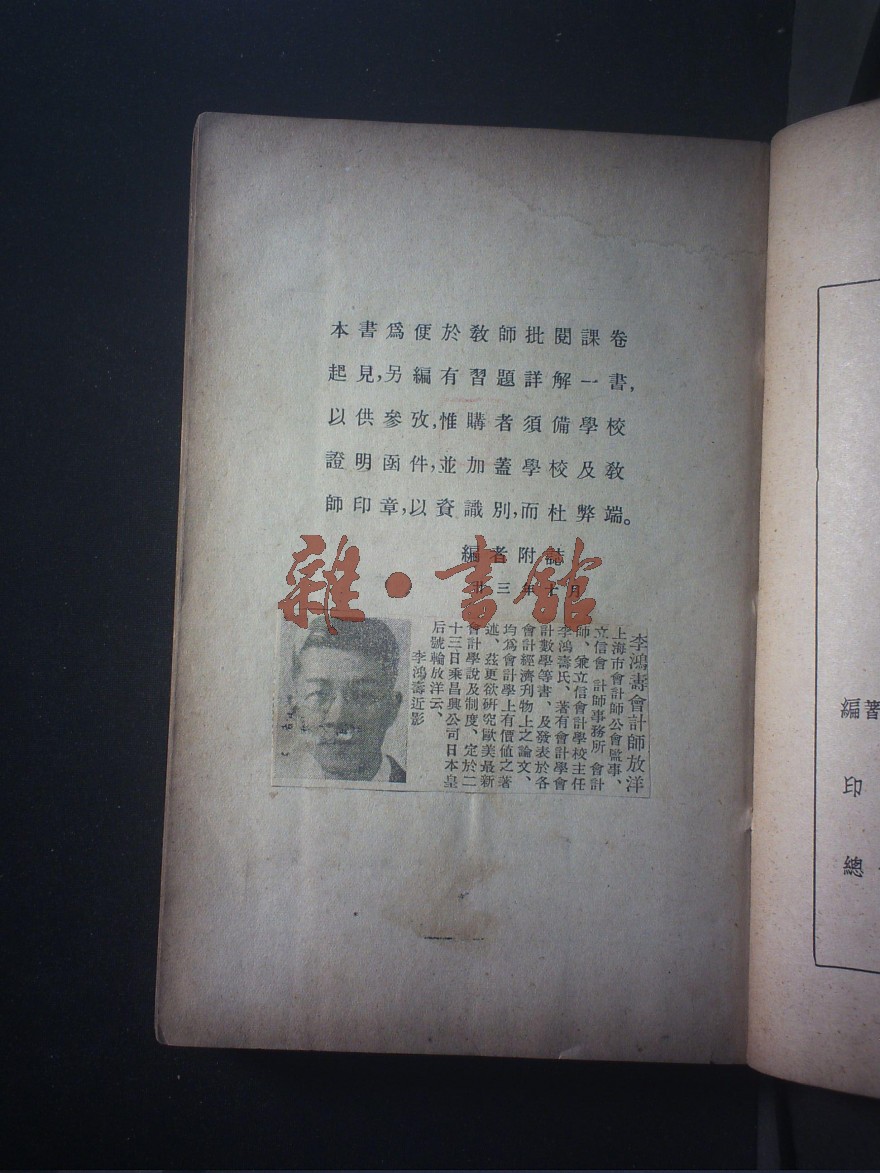 本書爲便於敎師批閱課卷
起見,另編有習題詳解一書,
以供參攷,惟購者須備學校
證明函件,並加蓋學校及敎
師印章,以資識別,而杜弊端。
編者附誌
廿三年十月
雜·書館
李鴻壽會計師放洋
上海市會計師公會監事、
立信會計師事務所會計
師、兼立信會計學校主任
李鴻壽氏、著有會計學會
計數學等書、及發表於各
會計經濟刋物上之論文、
均爲會計學上有價値之著
述、茲更欲研究歐美最新
會計學說及制度、定於二
十三日乘昌興公司日本皇
后號輪放洋云、
李鴻壽近影
編著
印
總